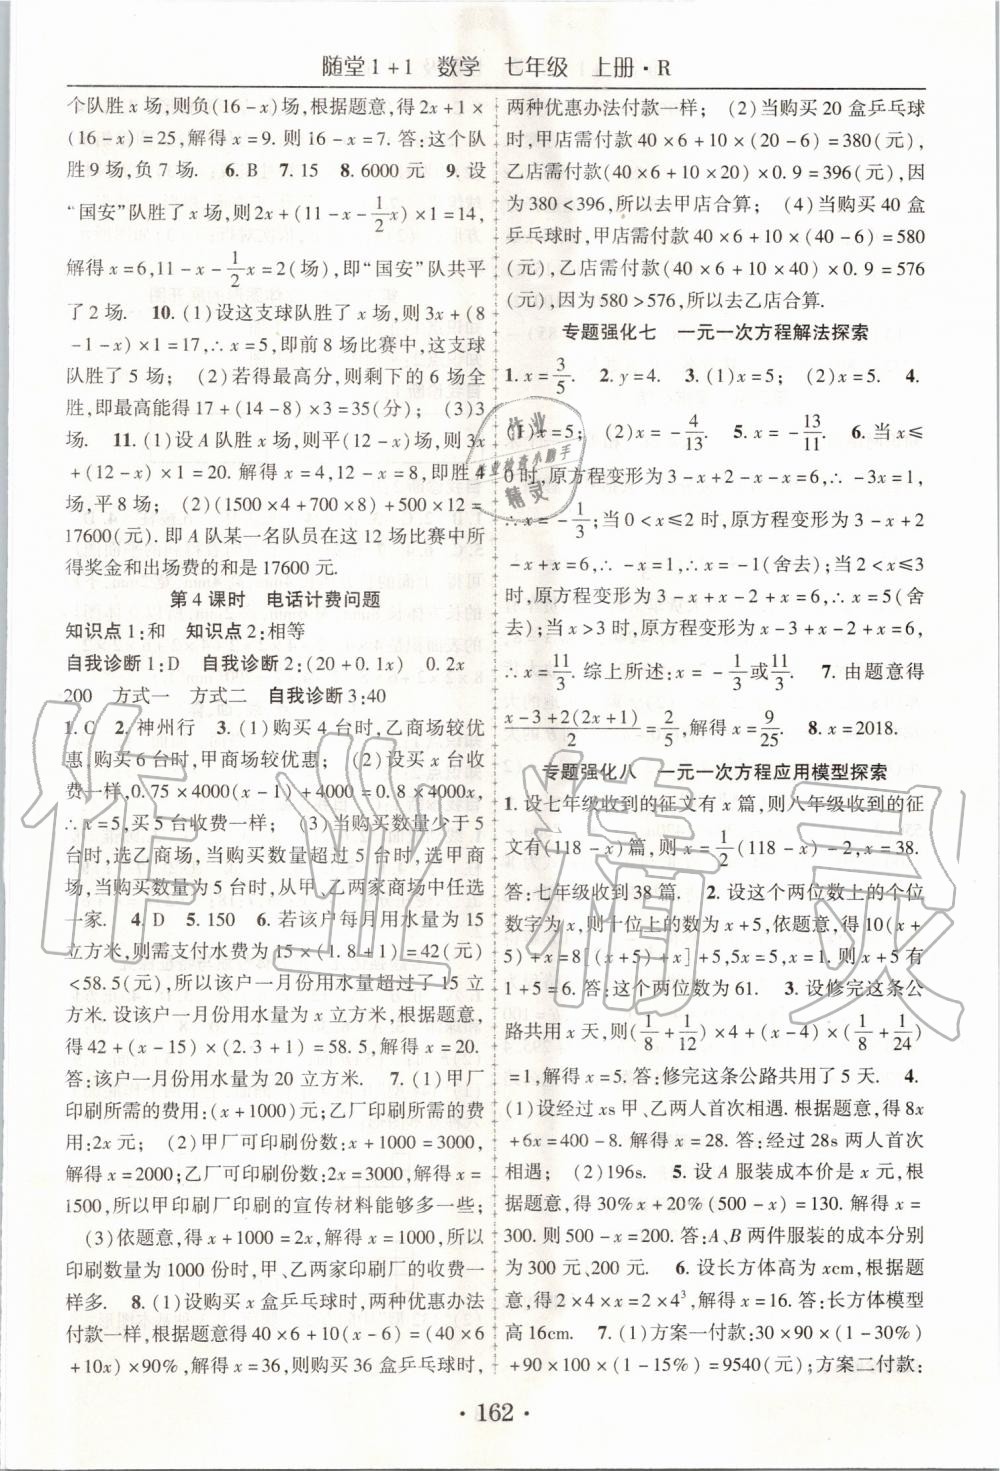 随堂1+1 数学 七年级 上册·R
个队胜x场,则负(16-x)场,根据题意,得2x+1×
(16-x)=25,解得x=9.则16-x=7.答:这个队
胜9场,负7场. 6.B 7.15 8.6000元 9.设
“国安”队胜了x场,则2x+(11-x-1/2x)×1=14,
解得x=6,11-x-1/2x=2(场),即“国安”队共平
了2场. 10.(1)设这支球队胜了x场,则3x+(8
-1-x)×1=17,∴x=5,即前8场比赛中,这支球
队胜了5场; (2)若得最高分,则剩下的6场全
胜,即最高能得17+(14-8)×3=35(分); (3)3
场. 11.(1)设A队胜x场,则平(12-x)场,则3x
+(12-x)×1=20.解得x=4,12-x=8,即胜4
场,平8场; (2)(1500×4+700×8)+500×12=
17600(元).即A队某一名队员在这12场比赛中所
得奖金和出场费的和是17600元.
第4课时 电话计费问题
知识点1:和 知识点2:相等
自我诊断1:D 自我诊断2:(20+0.1x) 0.2x
200 方式一 方式二 自我诊断3:40
1.C 2.神州行 3.(1)购买4台时,乙商场较优
惠,购买6台时,甲商场较优惠; (2)设买x台收
费一样,0.75×4000(x-1)+4000=0.8×4000x,
∴x=5,买5台收费一样; (3)当购买数量少于5
台时,选乙商场,当购买数量超过5台时,选甲商
场,当购买数量为5台时,从甲、乙两家商场中任选
一家. 4.D 5.150 6.若该户每月用水量为15
立方米,则需支付水费为15×(1.8+1)=42(元)
<58.5(元),所以该户一月份用水量超过了15立
方米.设该户一月份用水量为x立方米,根据题意,
得42+(x-15)×(2.3+1)=58.5,解得x=20.
答:该户一月份用水量为20立方米. 7.(1)甲厂
印刷所需的费用:(x+1000)元;乙厂印刷所需的费
用:2x元; (2)甲厂可印刷份数:x+1000=3000,
解得x=2000;乙厂可印刷份数:2x=3000,解得x=
1500,所以甲印刷厂印刷的宣传材料能够多一些;
(3)依题意,得x+1000=2x,解得x=1000,所以
印刷数量为1000份时,甲、乙两家印刷厂的收费一
样多. 8.(1)设购买x盒乒乓球时,两种优惠办法
付款一样,根据题意,得40×6+10(x-6)=(40×6
+10x)×90%,解得x=36,则购买36盒乒乓球时,
两种优惠办法付款一样; (2)当购买20盒乒乓球
时,甲店需付款40×6+10×(20-6)=380(元),
乙店需付款(40×6+10×20)×0.9=396(元),
因为380<396,所以去甲店合算; (4)当购买40盒
乒乓球时,甲店需付款40×6+10×(40-6)=580
(元),乙店需付款(40×6+10×40)×0.9=576
(元),因为580>576,所以去乙店合算.
专题强化七 一元一次方程解法探索
1.x=3/5. 2.y=4. 3.(1)x=5; (2)x=5. 4.
(1)x=5; (2)x=-4/13. 5.x=-13/11. 6.当x≤
0时,原方程变形为3-x+2-x-x=6,∴-3x=1,
∴x=-1/3;当0<x≤2时,原方程变形为3-x+2
-x+x=6,∴x=-1(舍去); 当2<x≤3
时,原方程变形为3-x+x-2+x=6,∴x=5(舍
去);当x>3时,原方程变形为x-3+x-2+x=6,
∴x=11/3.综上所述:x=-1/3或11/3. 7.由题意得
(x-3+2(2x+1))/2=2/5,解得x=9/25. 8.x=2018.
专题强化八 一元一次方程应用模型探索
1.设七年级收到的征文有x篇,则八年级收到的征
文有(118-x)篇,则x=1/2(118-x)-2,x=38.
答:七年级收到38篇. 2.设这个两位数上的个位
数字为x,则十位上的数为x+5,依题意,得10(x+
5)+x=8[(x+5)+x]+5,5x=5,x=1.则x+5有
1+5=6.答:这个两位数为61. 3.设修完这条公
路共用x天,则(1/8+1/12)×4+(x-4)×(1/8+1/24)
=1,解得x=5.答:修完这条公路共用了5天. 4.
(1)设经过xs甲、乙两人首次相遇.根据题意,得8x
+6x=400-8.解得x=28.答:经过28s两人首次
相遇; (2)196s. 5.设A服装成本价是x元,根
据题意,得30%x+20%(500-x)=130.解得x=
300.500-x=200.答:A、B两件服装的成本分别为
300元、200元. 6.设长方体高为xcm,根据题
意,得2×4×x=2×4³,解得x=16.答:长方体模型
高16cm. 7.(1)方案一付款:30×90×(1-30%)
+90×100×(1-15%)=9540(元);方案二付款:
·162·
作业精灵
作业
作业检查小助手
精灵